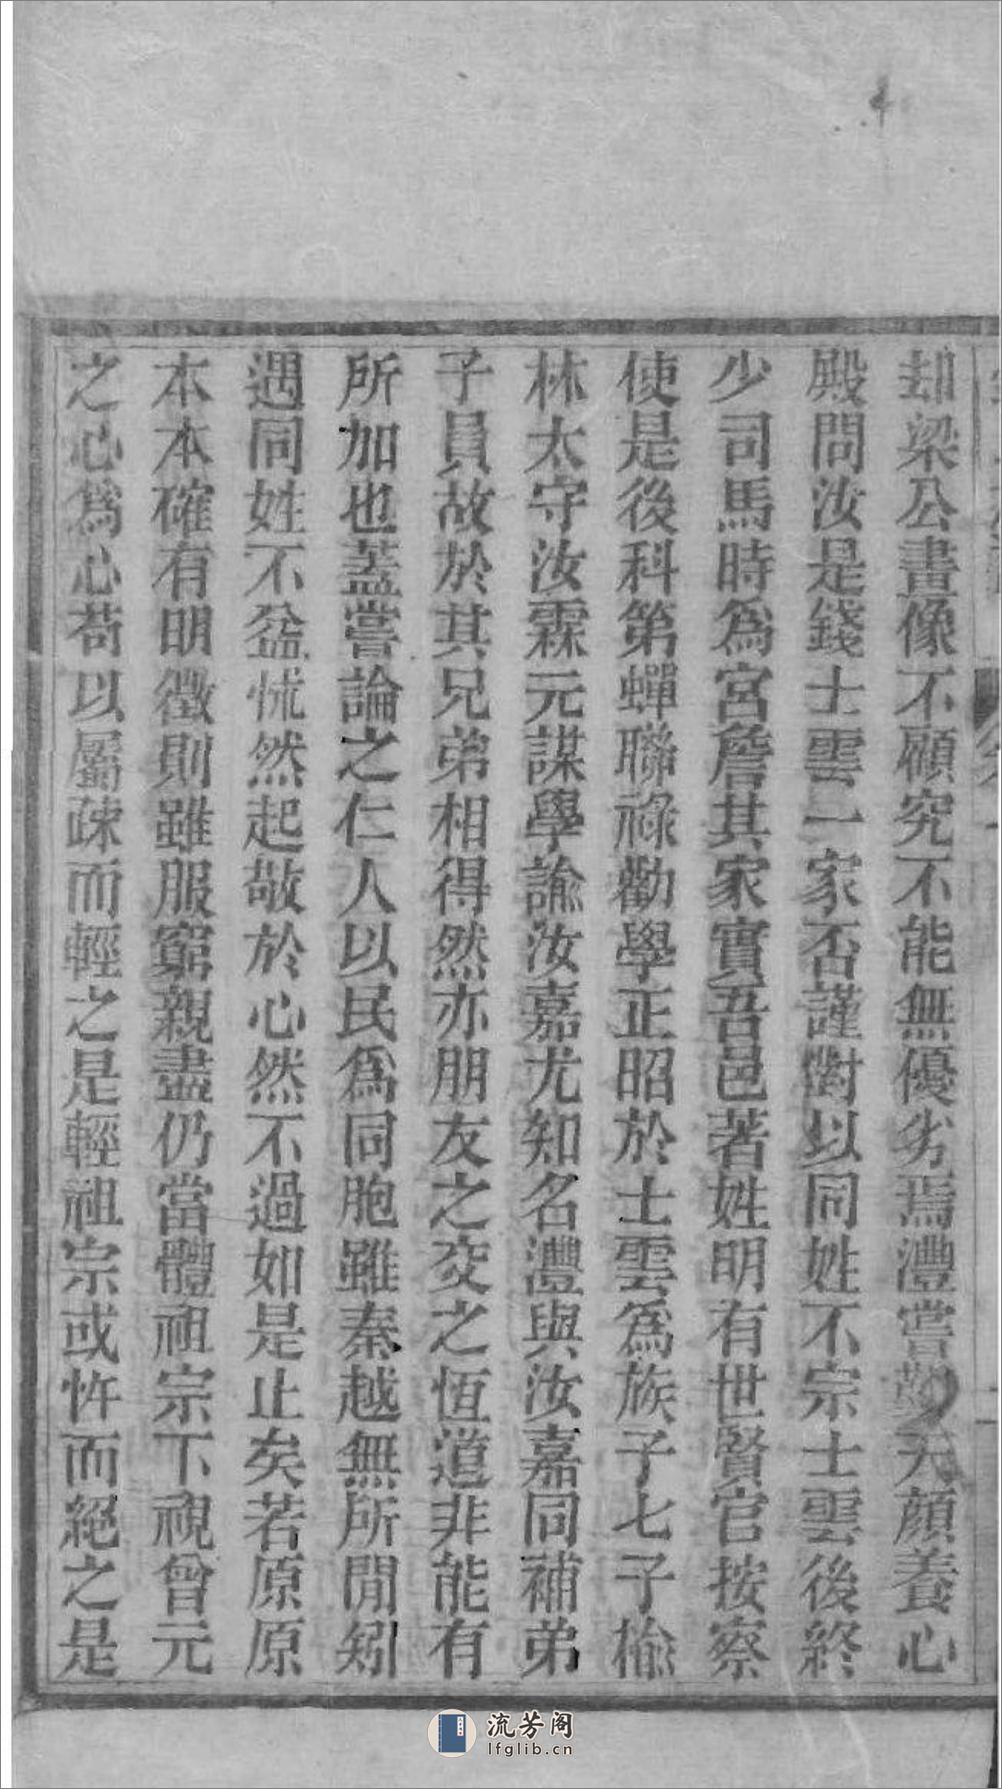 却梁公畫像不顧究不能無優劣焉灃嘗觐天顔養心
殿問汝是錢士雲一家否謹對以同姓不宗士雲後終
少司馬時爲宮詹其家實吾邑著姓明有世賢官按察
使是後科第蟬聯祿勸學正昭於士雲爲族子七子楡
林太守汝霖元謀學諭汝嘉尤知名灃與汝嘉同補弟
子員故於其兄弟相得然亦朋友之交之恆道非能有
所加也蓋嘗論之仁人以民爲同胞雖秦越無所閒矧
遇同姓不益怵然起敬於心然不過如是止矣若原原
本本確有明徵則雖服窮親盡仍當體祖宗下視曾元
之心爲心苟以屬疎而輕之是輕祖宗或忤而絕之是
流芳阁
lfglib.cn